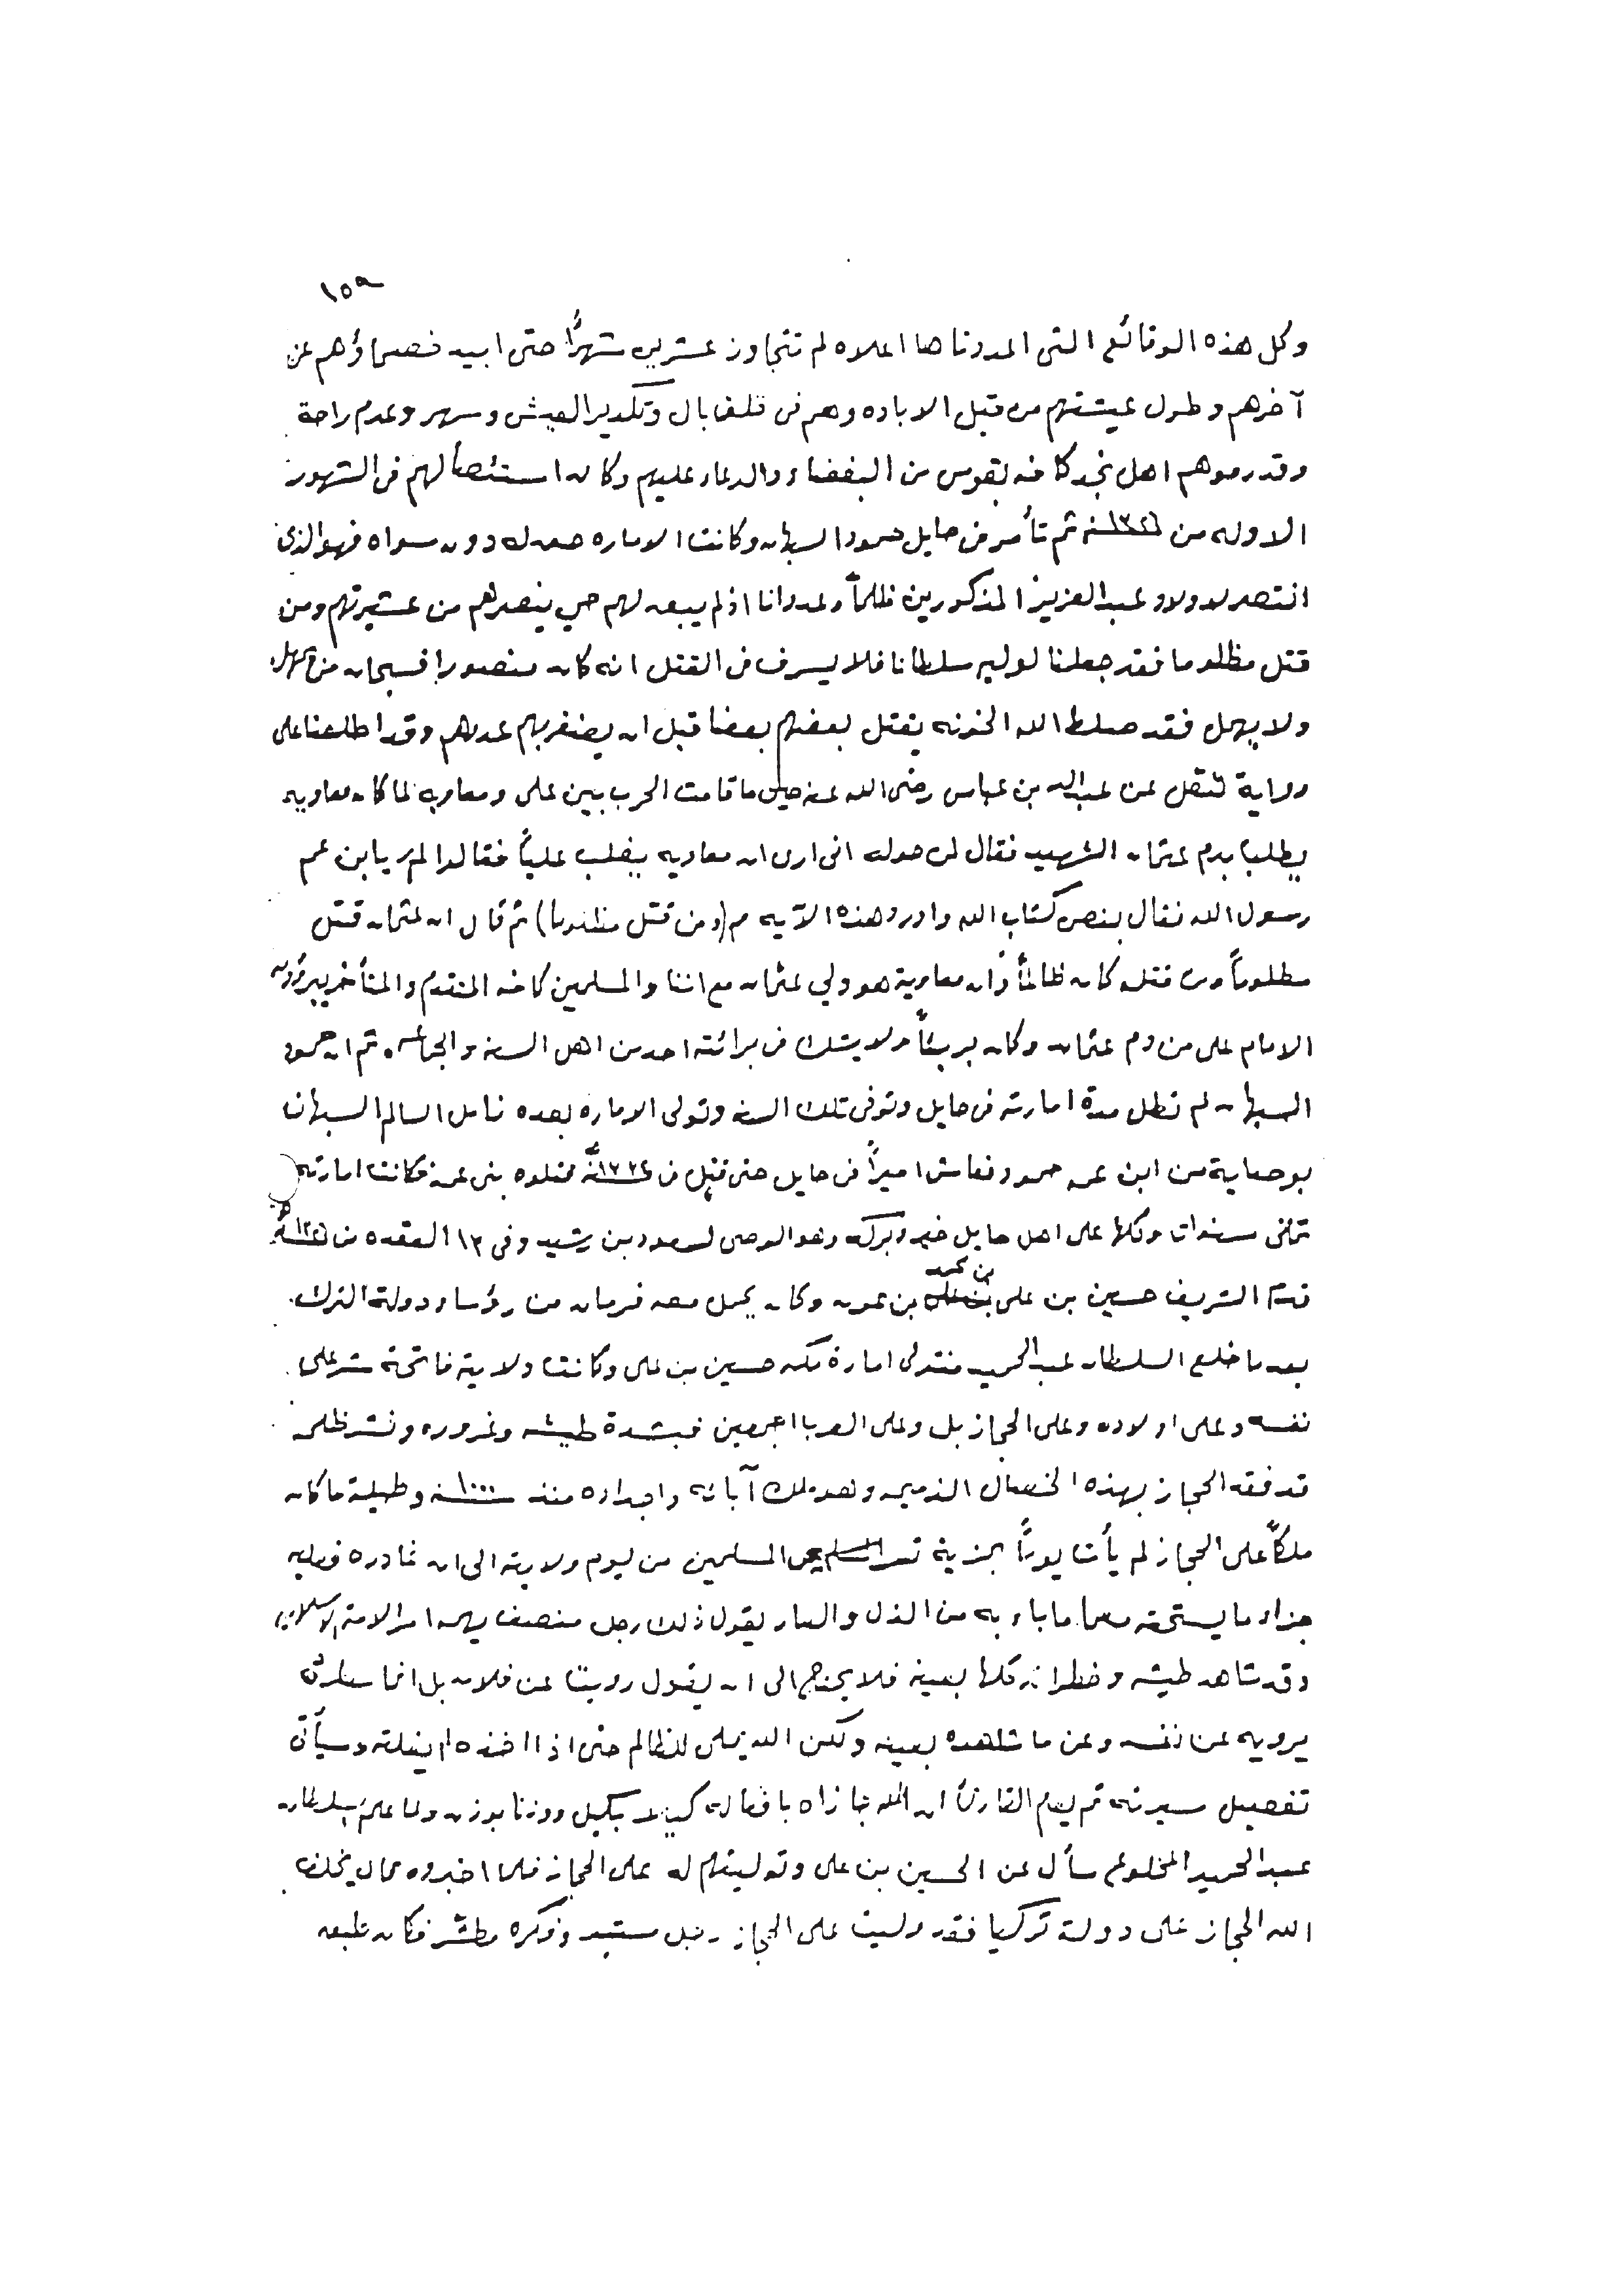 ١٥٩
وكل هذه الوقائع التى اوردناها اعلاه لم تتجاوز عشرين شهرًا حتى ابيد خصماؤهم عن
آخرهم وطول عيشتهم من قبل الاباده وهم فى قلف بال وتكدير العيش وسهر وعدم راحة
وقد رموهم اهل نجد كافه بقوس من البغضاء والدعاء عليهم وكان استئصالهم فى الشهور
الاوله من ١٣٢٦ـنه ثم تأمر فى حايل حمود السبهان وكانت الاماره صعدله دون سواه فهو الذى
انتصر لاولاد عبد العزيز المذكورين ظلمًا وعدوانا اذ لم يبعد لهم حي ينصرهم من عشيرتهم ومن
قتل مظلوما فقد جعلنا لوليه سلطانا فلا يسرف فى القتل انه كان منصورا فسبحان من يمهل
ولا يهمل فقد صلط الله الخونه يقتل بعضهم بعضا قبل ان يضفر بهم عدوهم وقد اطلعنا على
رواية تنقل عن عبدالله بن عباس رضى الله عنه حين ما قامت الحرب بين على ومعاويه لما كان معاويه
يطلبا بدم عثمان الشهيد فقال لمن حوله انى ارى ان معاويه يغلب عليًا فقالوا لم يا بن عم
رسول الله فقال بنص كتاب الله واورد هذه الآيه م (ومن قتل مظلوما) ثم قال ان عثمان قتل
مظلومًا ومن قتله كان ظالمًا وان معاوية هو ولي عثمان مع اننا والمسلمين كافه المتقدم والمتأخر يبرؤن
الامام على من دم عثمان وكان بريئًا ولا يشك فى برائته احد من اهل السنه والجماعه ثم ان حمود
السبهان لم تطل مدة امارته فى حايل وتوفى تلك السنه وتولى الاماره بعده زامل السالم السبهان
بوصاية من ابن عمه حمود فعاش اميرًا فى حايل حتى قتل فى ١٣٣٤ـنه قتلوه بنى عمه فكانت امارته
ثمانى سنوات وكلها على اهل حايل خير وبركه وهو الوصى لسعود بن رشيد وفى ١٣ القعده من ١٣٢٦ـنه
قدم الشريف حسين بن على بن محمد بن عون وكان يحمل معه فرمان من رؤساء دولة الترك
بعد ما خلع السلطان عبد الحميد فتولى امارة مكه حسين بن على وكانت ولايته فاتحة شر على
نفسه وعلى اولاده وعلى الحجاز بل وعلى العرب اجمعين فبشدة طيشه وغروره ونشر ظلمه
قد فقد الحجاز بهذه الخصال الذميمه وهو ملك آبائه واجداده منذ ١٠٠٠ـنه وطيلة ما كان
ملكًا على الحجاز لم يأت يومًا بمزية تسر المسلمين من يوم ولايته الى ان غادره فعليه
جزاء ما يستحقه معما ما باء به من الذل والعار يقول ذلك رجل منصف يهمه امر الامة الاسلاميه
وقد شاهد طيشه وخطرانه كلها بعينه فلا يحتاج الى ان يقول روينا عن فلان بل انما سطره
يرويه عن نفسه وعن ما شاهده بعينه ولكن الله يملى للظالم حتى اذا اخذه لم يفلته وسيأتى
تفصيل سيرته ثم يعلم القارئ ان الله جازاه بافعاله كيلا بكيل ووزنا بوزن ولما علم السلطان
عبد الحميد المخلوع سأل عن الحسين بن على وتوليتهم له على الحجاز فلما اخبروه قال يخلف
الله الحجاز على دولة تركيا فقد وليت على الحجاز رجل مستبد وفكره مطشر فكان طبعه